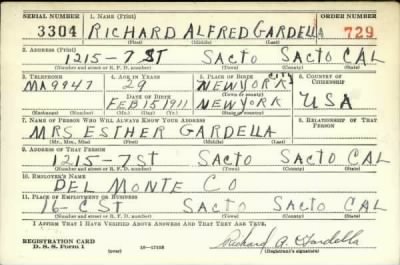 SERIAL NUMBER 1. NAME (Print) ORDER NUMBER
3304 RICHARD ALFRED GARDELLA 729
(First) (Middle) (Last)
2. ADDRESS (Print)
1215-7 ST SACTO SACTO CAL
(Number and street or R. F. D. number) (Town) (County) (State)
3. TELEPHONE 4. AGE IN YEARS 5. PLACE OF BIRTH 6. COUNTRY OF CITIZENSHIP
MA9947 29 NEW YORK CITY
DATE OF BIRTH (Town or county)
FEB 15 1911 NEW YORK USA
(Exchange) (Number) (Mo.) (Day) (Yr.) (State or country)
7. NAME OF PERSON WHO WILL ALWAYS KNOW YOUR ADDRESS 8. RELATIONSHIP OF THAT PERSON
MRS ESTHER GARDELLA
(Mr., Mrs., Miss) (First) (Middle) (Last)
9. ADDRESS OF THAT PERSON
1215-7 ST SACTO SACTO CAL
(Number and street or R. F. D. number) (Town) (County) (State)
10. EMPLOYER'S NAME
DEL MONTE CO
11. PLACE OF EMPLOYMENT OR BUSINESS
16-C ST SACTO SACTO CAL
(Number and street or R. F. D. number) (Town) (County) (State)
I AFFIRM THAT I HAVE VERIFIED ABOVE ANSWERS AND THAT THEY ARE TRUE.
REGISTRATION CARD
D. S. S. Form 1 (over) 16-17105 Richard A. Gardella
(Registrant's signature)